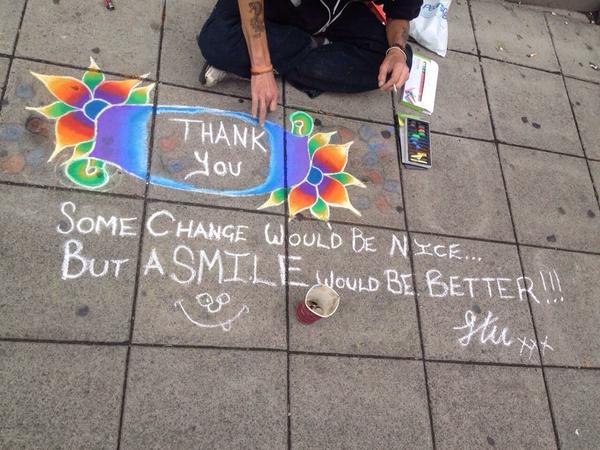 THANK
You
SOME CHANGE WOULD BE NICE...
BUT A SMILE WOULD BE BETTER!!!
Stu xxx